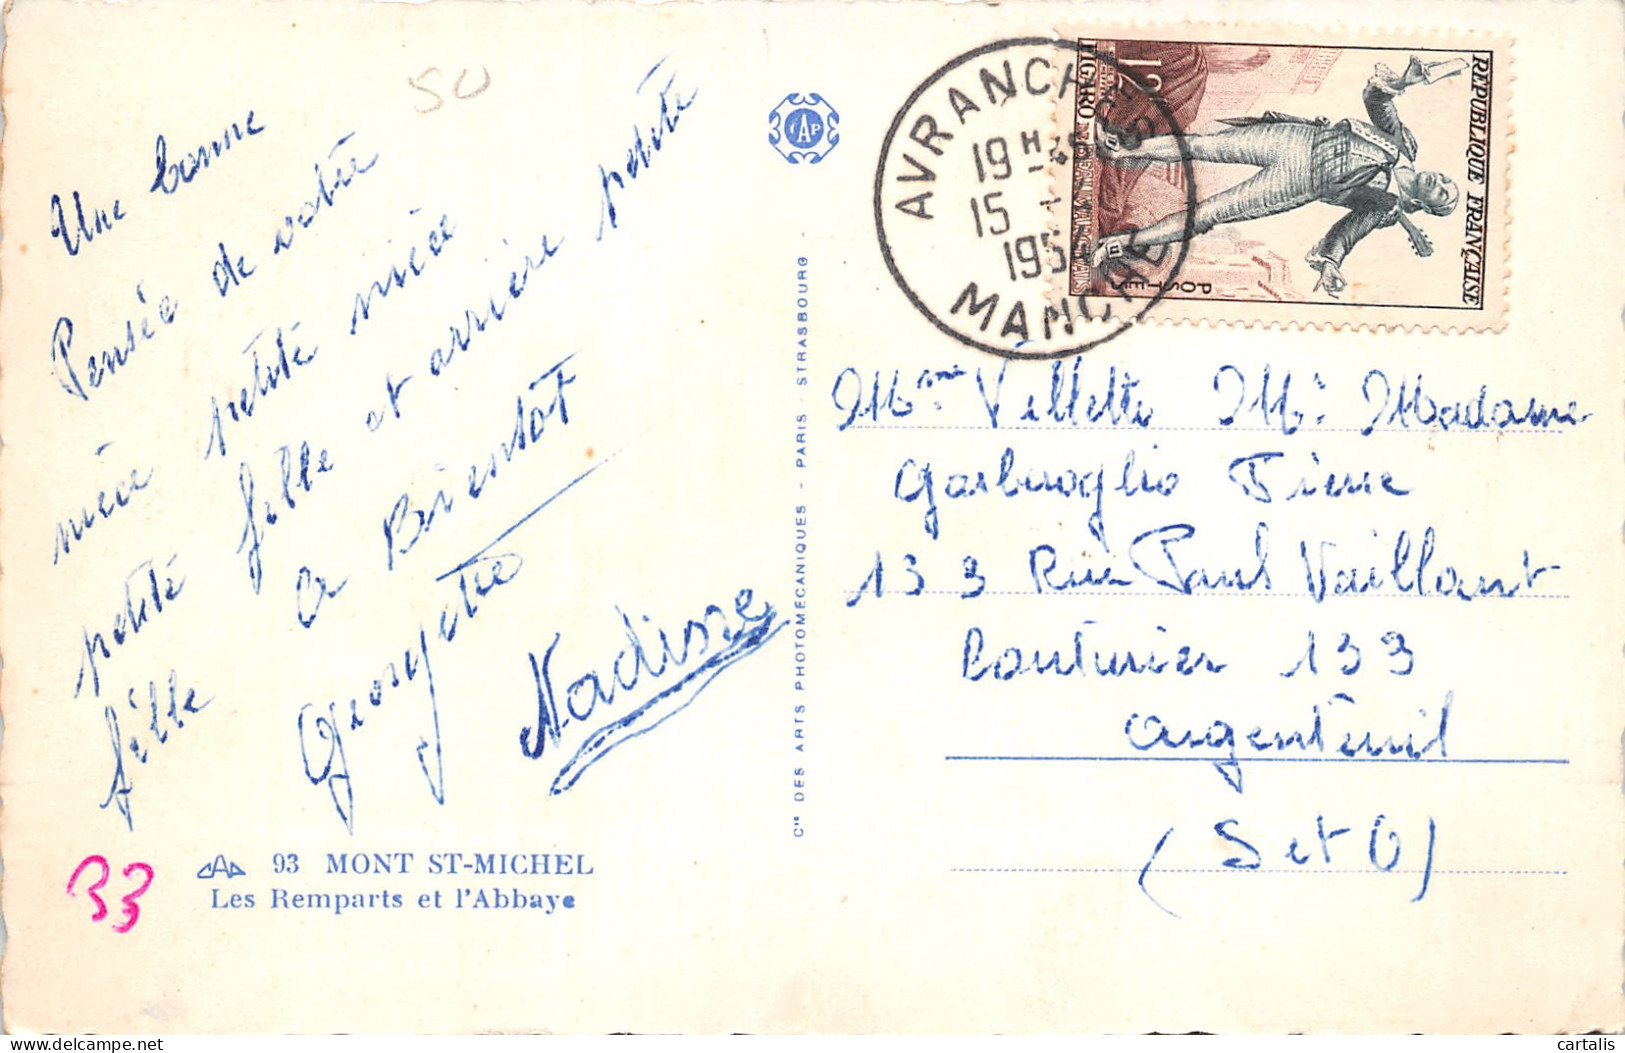 50
Une bonne
Pensée de votre
nièce petite nièce
petite fille et arrière petite
fille a Bientot
Georgette
Nadisse
93 MONT ST-MICHEL
Les Remparts et l'Abbaye
33
CAP
Cie DES ARTS PHOTOMÉCANIQUES - PARIS - STRASBOURG -
AVRANCHES
19 H
15
1954
MANCHE
REPUBLIQUE FRANÇAISE
POSTES
12F
FIGARO
Mme Villette Mr Madame
Garbuoglio Pierre
133 Rue Paul Vaillant
Couturier 133
Argenteuil
(S et O)
cartalis